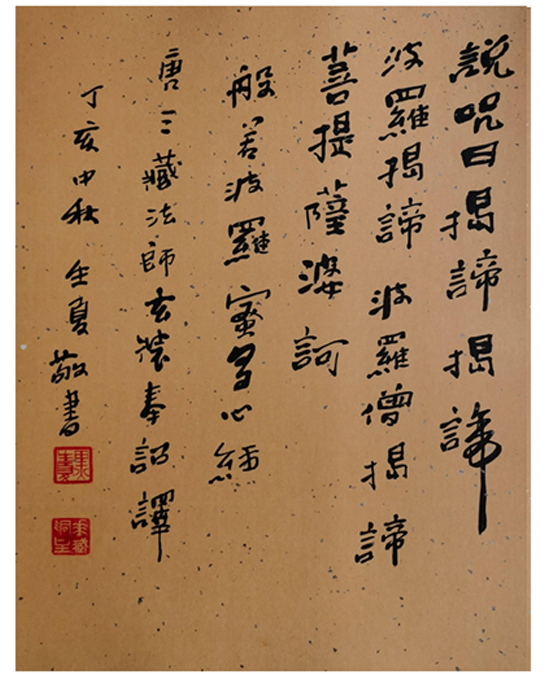 説呪曰揭諦揭諦
波羅揭諦波羅僧揭諦
菩提薩婆訶
般若波羅蜜多心經
唐三藏法師玄奘奉詔譯
丁亥中秋生夏敬書